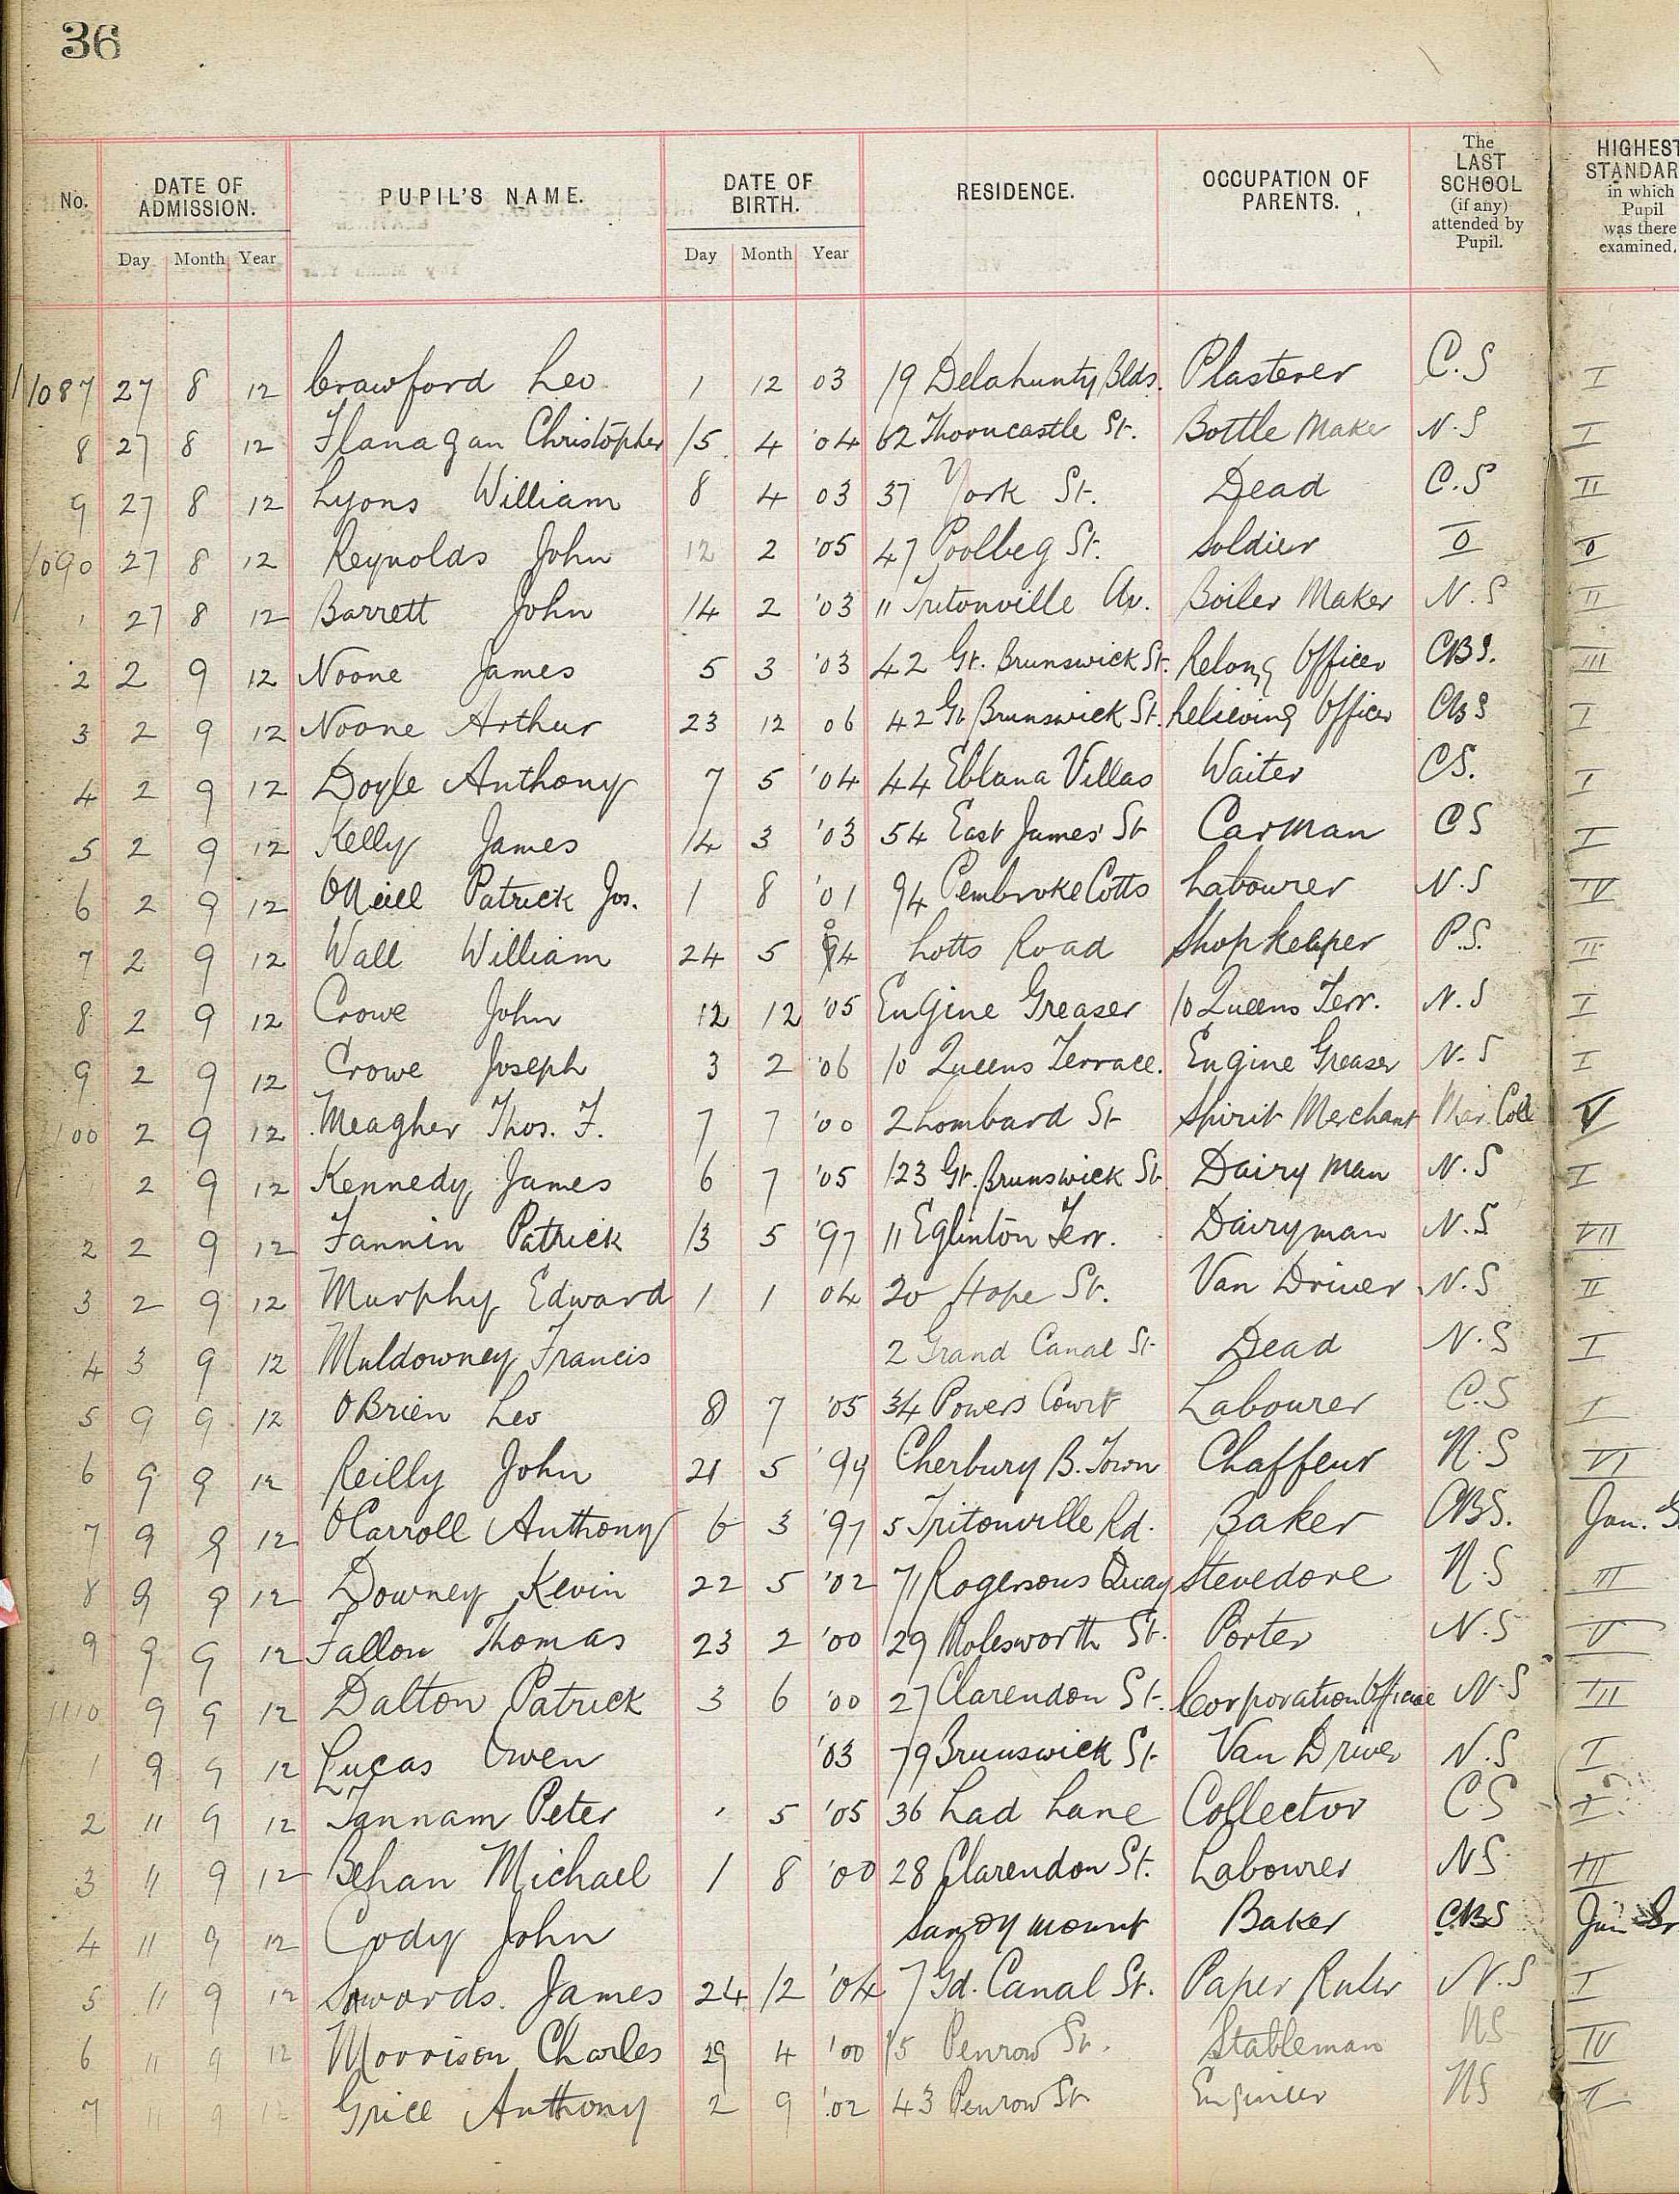 36
No. DATE OF ADMISSION. PUPIL'S NAME. DATE OF BIRTH. RESIDENCE. OCCUPATION OF PARENTS. The LAST SCHOOL (if any) attended by Pupil. HIGHEST STANDAR in which Pupil was there examined.
Day Month Year Day Month Year
1087 27 8 12 Crawford Leo 1 12 03 19 Delahunty Blds. Plasterer C.S I
8 27 8 12 Flanagan Christopher 15 4 '04 62 Thorncastle St. Bottle Maker N.S I
9 27 8 12 Lyons William 8 4 03 37 York St. Dead C.S II
1090 27 8 12 Reynolds John 12 2 '05 47 Poolbeg St. Soldier O O
1 27 8 12 Barrett John 14 2 '03 11 Tritonville Av. Boiler Maker N.S II
2 2 9 12 Noone James 5 3 '03 42 Gt. Brunswick St. Officer CBS. III
3 2 9 12 Noone Arthur 23 12 06 42 Gt. Brunswick St. Relieving Officer CBS I
4 2 9 12 Doyle Anthony 7 5 '04 44 Eblana Villas Waiter CS. I
5 2 9 12 Kelly James 14 3 '03 54 East James' St Carman CS I
6 2 9 12 ONeill Patrick Jos. 1 8 '01 94 Pembroke Cotts Labourer N.S IV
7 2 9 12 Wall William 24 5 04 Lotts Road Shopkeeper P.S. II
8 2 9 12 Crowe John 12 12 '05 Engine Greaser 10 Queens Terr. N.S I
9 2 9 12 Crowe Joseph 3 2 '06 10 Queens Terrace. Engine Greaser N.S I
1100 2 9 12 Meagher Thos. F. 7 7 '00 2 Lombard St Spirit Merchant Mar. Coll V
2 9 12 Kennedy James 6 7 '05 123 Gt. Brunswick St. Dairy Man N.S I
2 2 9 12 Fannin Patrick 13 5 '97 11 Eglinton Terr. Dairyman N.S VII
3 2 9 12 Murphy Edward 1 1 04 20 Hope St. Van Driver N.S II
4 3 9 12 Muldowney Francis 2 Grand Canal St. Dead N.S I
5 9 9 12 OBrien Leo 8 7 '05 34 Powers Court Labourer C.S I
6 9 9 12 Reilly John 21 5 '99 Cherbury B. Town Chaffeur N.S VI
7 9 9 12 OCarroll Anthony 6 3 '97 5 Tritonville Rd. Baker CBS. Jun. G
8 9 9 12 Downey Kevin 22 5 '02 71 Rogersons Quay Stevedore N.S III
9 9 9 12 Fallon Thomas 23 2 '00 29 Molesworth St. Porter N.S V
1110 9 9 12 Dalton Patrick 3 6 '00 27 Clarendon St. Corporation N.S III
1 9 9 12 Lucas Owen '03 79 Brunswick St. Van Driver N.S I
2 11 9 12 Tannam Peter 5 '05 36 Lad Lane Collector C.S I
3 11 9 12 Behan Michael 1 8 '00 28 Clarendon St. Labourer NS III
4 11 9 12 Cody John Sandymount Baker C.B.S Jun Gr
5 11 9 12 Swords. James 24 12 '04 7 Gd. Canal St. Paper Ruler N.S I
6 11 9 12 Morrison Charles 29 4 '00 15 Penrow St. Stableman NS IV
7 11 9 12 Grice Anthony 2 9 '02 43 Penrow St. Engineer NS II